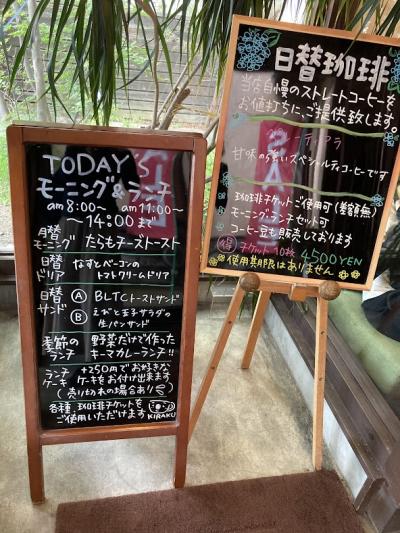 TODAY'S
モーニング&ランチ
am 8:00〜 am 11:00〜
〜14:00まで
月替 モーニング たらもチーズトースト
日替 ドリア なすとベーコンの トマトクリームドリア
日替 サンド Ⓐ BLTCトーストサンド
Ⓑ えびと玉子サラダの 生パンサンド
季節の ランチ 野菜だけで作った キーマカレーランチ!!
ランチ ケーキ +250円でお好きな ケーキをお付け出来ます (売り切れの場合あり)
各種 珈琲チケットを ご使用いただけます KIRAKU
日替珈琲
当店自慢のストレートコーヒーを
お値打ちに、ご提供致します。
甘味のあるいいスペシャルティコーヒーです
珈琲チケットご使用可(差額無)
モーニング・ランチセット可
コーヒー豆も販売しております
得 チケット10枚 4500YEN
使用期限はありません